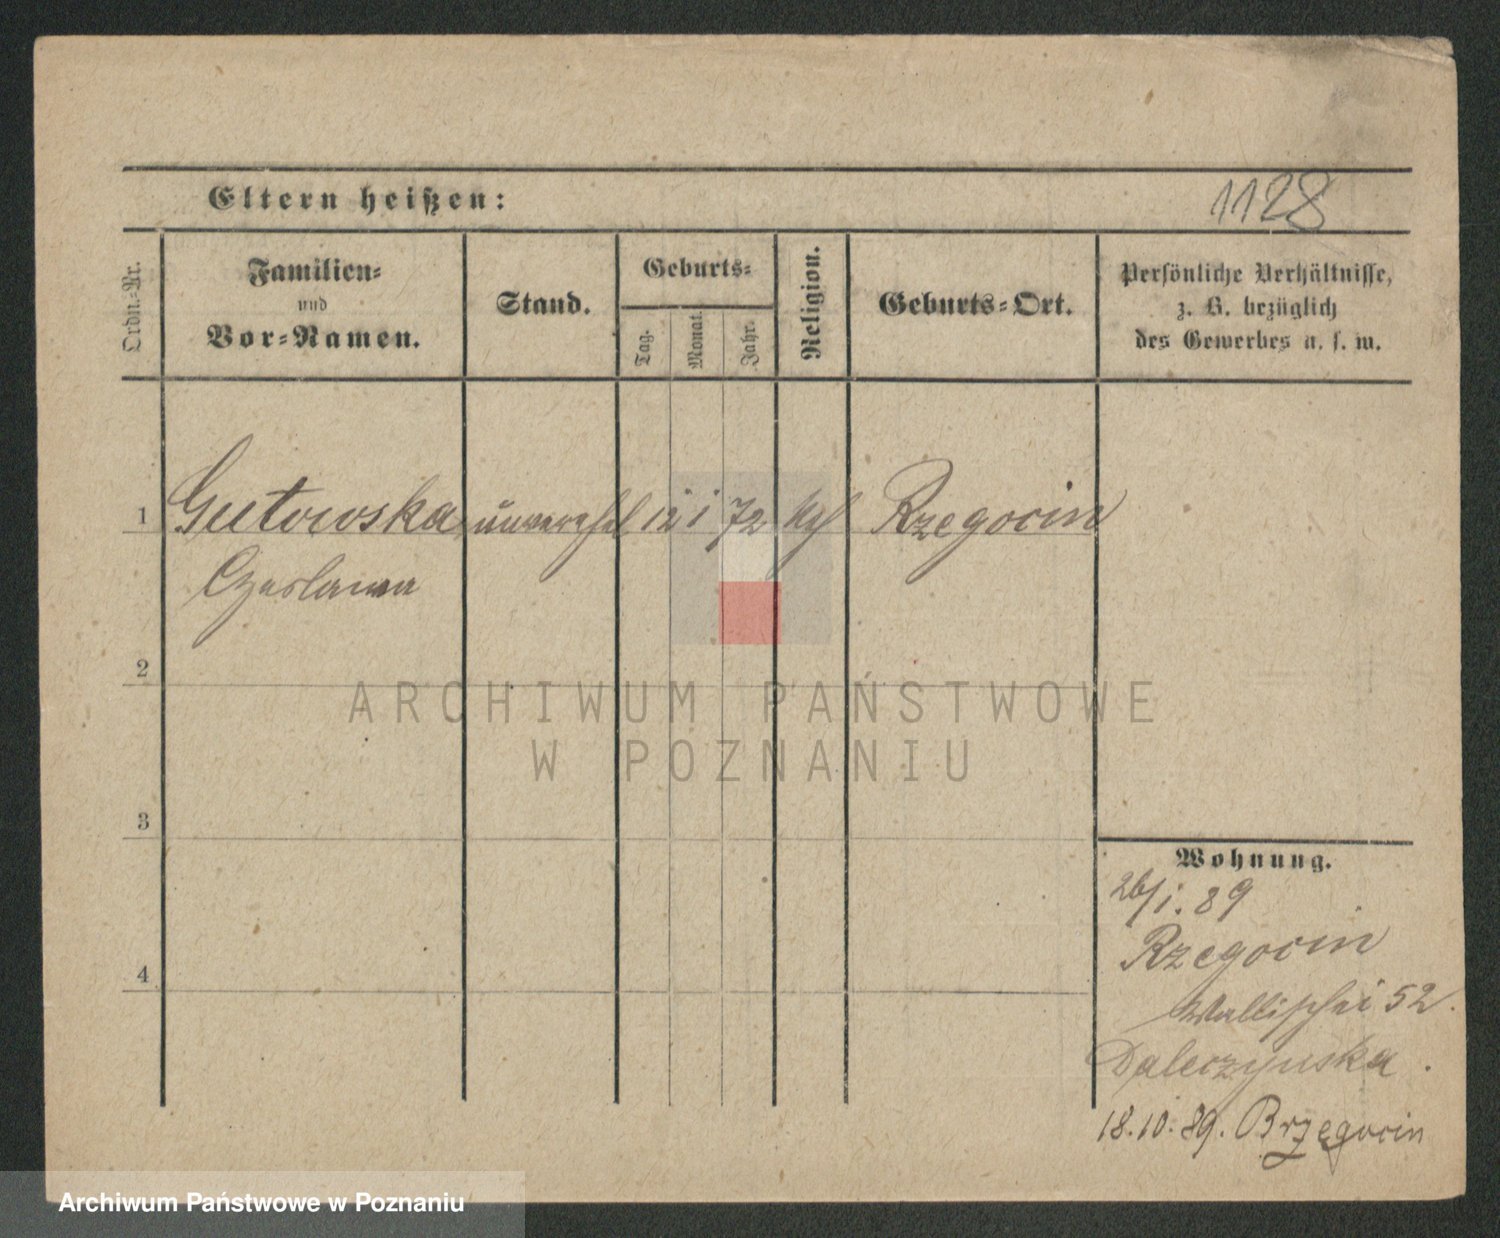 Eltern heißen:
1128
Ordn.-Nr.
Familien-
und
Vor-Namen.
Stand.
Geburts-
Tag.
Monat.
Jahr.
Religion.
Geburts-Ort.
Persönliche Verhältnisse,
z. B. bezüglich
des Gewerbes u. s. w.
1 Gutowska unverehel 12 i 72 kth Rzegocin
Czeslawa
2
ARCHIWUM PAŃSTWOWE
W POZNANIU
3
Wohnung.
26/1. 89
Rzegocin
4
Wallischei 52.
Daleszynska.
18.10.89. Brzegocin
Archiwum Państwowe w Poznaniu